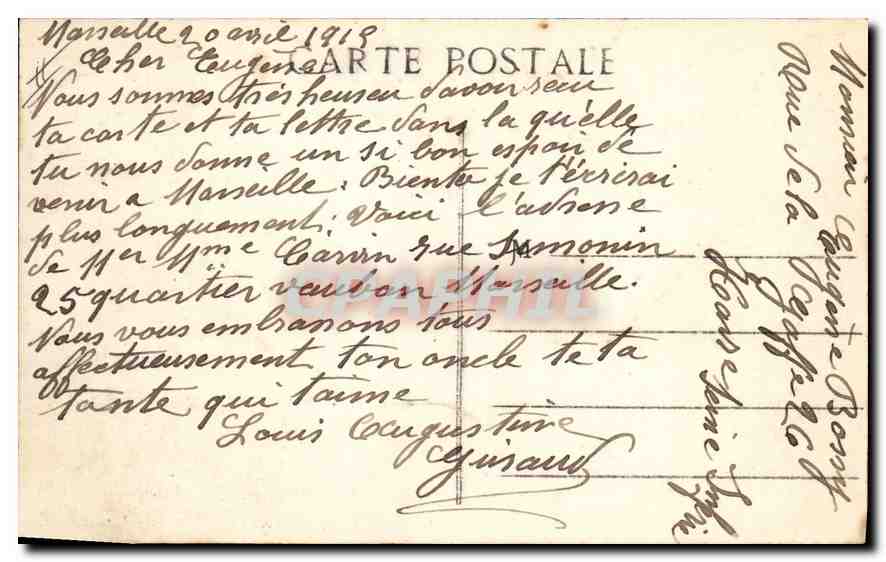 Marseille 20 avril 1919
Cher Eugène
CARTE POSTALE
Nous sommes très heureu d'avoir reçu
ta carte et ta lettre dans la qu'elle
tu nous donne un si bon espoir de
venir a Marseille. Biento je t'écrirai
plus longuement. Voici l'adresse
de Mer Mme rue Simonin
25 quartier vauban Marseille.
Nous vous embrassons tous
affectueusement ton oncle te ta
tante qui t'aime
Louis Augustine
Guiraud
M
CPAPHIL
Monsieur Eugène Bossy
Rue de la 26
Havre Seine Infrie